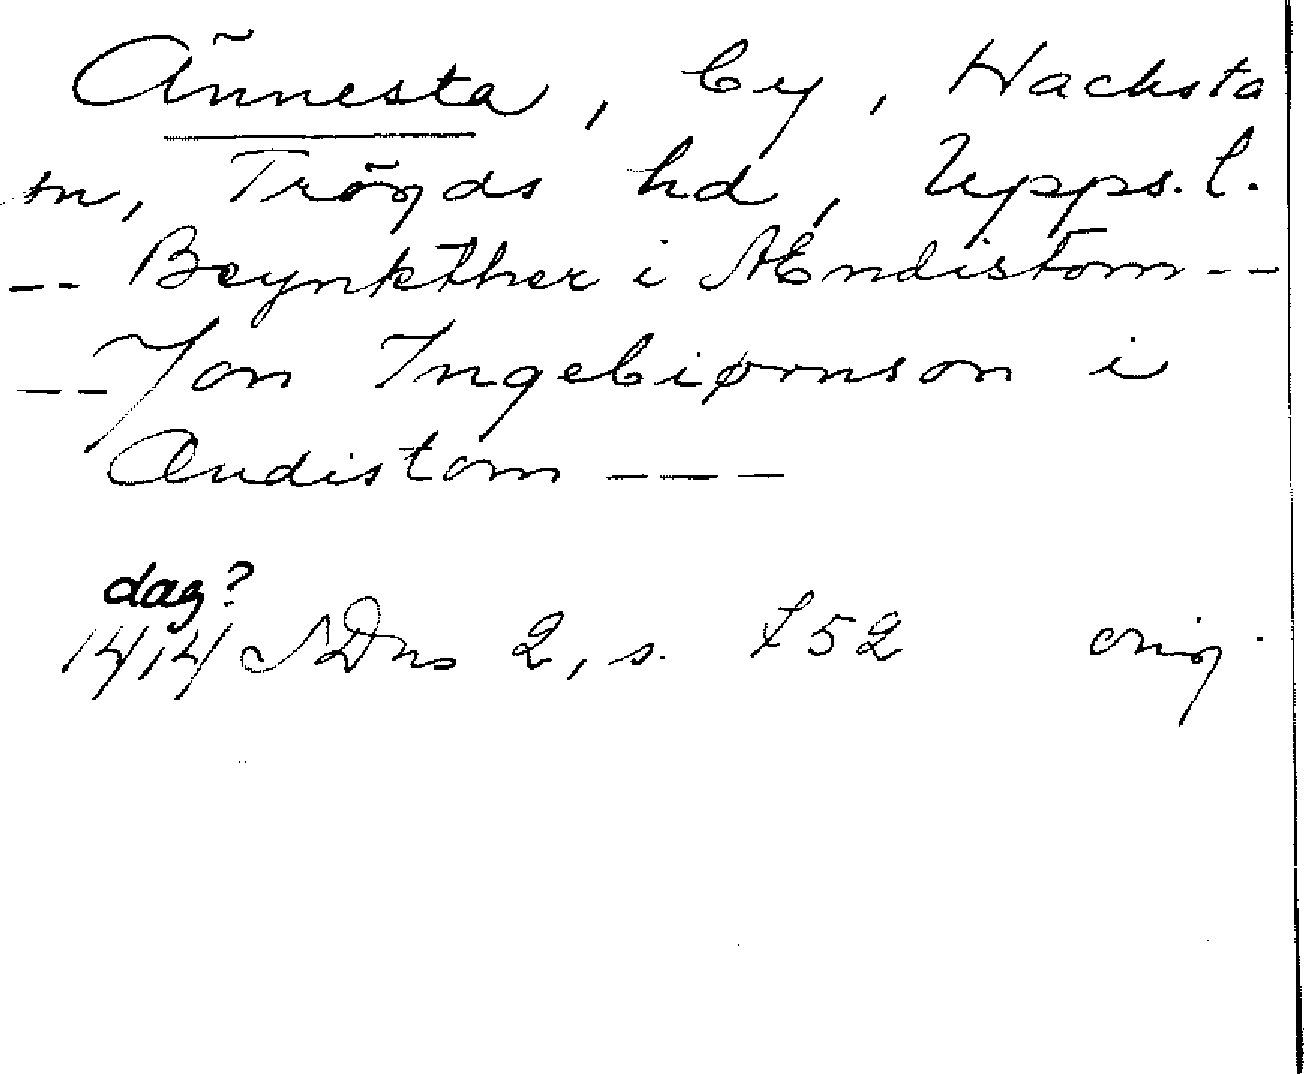 Ännesta, by, Hacksta
sn, Trögds hd, Upps. l.
-- Beynkther i Ændistom --
-- Jon Ingebiørnson i
Ændistom ---
dag?
1414 SDns 2, s. 752 orig.